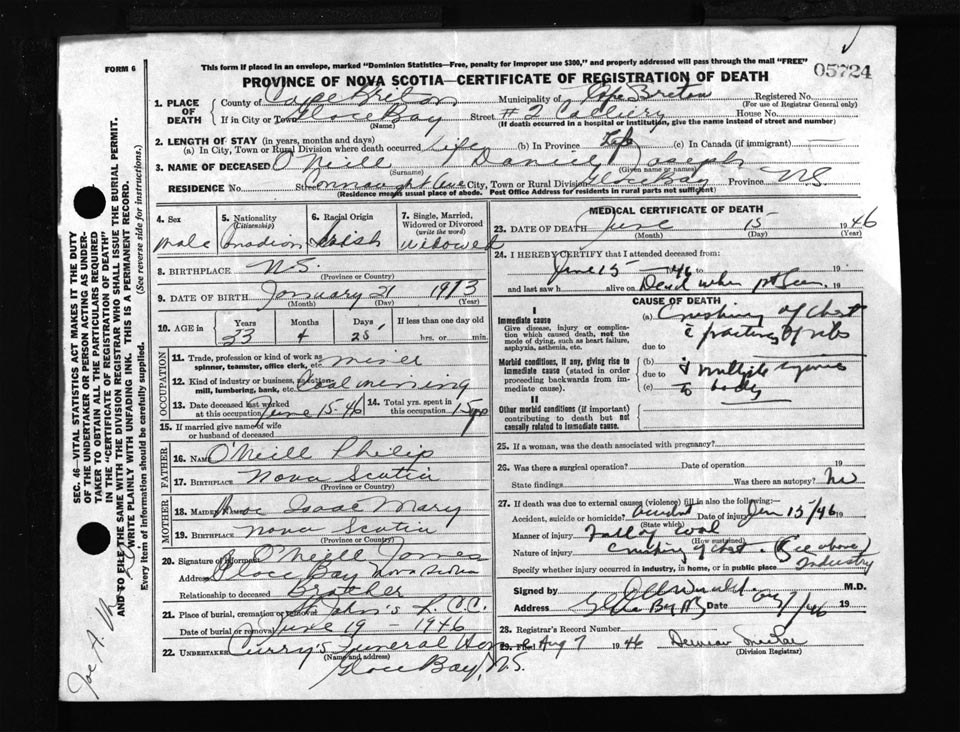 FORM 6
This form if placed in an envelope, marked "Dominion Statistics—Free, penalty for improper use $300," and properly addressed will pass through the mail "FREE"
05724
PROVINCE OF NOVA SCOTIA—CERTIFICATE OF REGISTRATION OF DEATH
1. PLACE OF DEATH
County of Cape Breton Municipality of Cape Breton Registered No.
(For use of Registrar General only)
If in City or Town Glace Bay Street # 2 Colliery House No.
(Name) (If death occurred in a hospital or institution, give the name instead of street and number)
2. LENGTH OF STAY (in years, months and days)
(a) In City, Town or Rural Division where death occurred Life (b) In Province Life (c) In Canada (if immigrant)
3. NAME OF DECEASED O'Neill Daniel Joseph
(Given name or names)
RESIDENCE No. Street Connaught Ave City, Town or Rural Division Glace Bay Province N.S.
(Residence means usual place of abode. Post Office Address for residents in rural parts not sufficient)
4. Sex
male
5. Nationality (Citizenship)
Canadian
6. Racial Origin
Irish
7. Single, Married, Widowed or Divorced (write the word)
Widowed
8. BIRTHPLACE N.S.
(Province or Country)
9. DATE OF BIRTH January 21 1913
(Month) (Day) (Year)
10. AGE in Years Months Days If less than one day old
33 4 25 hrs. or min.
OCCUPATION
11. Trade, profession or kind of work as spinner, teamster, office clerk, etc. miner
12. Kind of industry or business, as cotton-mill, lumbering, bank, etc. Coal mining
13. Date deceased last worked at this occupation June 15-46
14. Total yrs. spent in this occupation 15 yrs
15. If married give name of wife or husband of deceased
FATHER
16. NAME O'Neill Philip
17. BIRTHPLACE Nova Scotia
(Province or Country)
MOTHER
18. MAIDEN NAME Isaac Mary
19. BIRTHPLACE Nova Scotia
(Province or Country)
20. Signature of informant O'Neill James
Address Glace Bay Nova Scotia
Relationship to deceased Brother
21. Place of burial, cremation or removal St John's R.C.C.
Date of burial or removal June 19 - 1946
22. UNDERTAKER Curry's Funeral Home
(Name and address)
Glace Bay, N.S.
MEDICAL CERTIFICATE OF DEATH
23. DATE OF DEATH June 15 1946
(Month) (Day) (Year)
24. I HEREBY CERTIFY that I attended deceased from:
June 15 - 46 to 19
and last saw h alive on Dead when 1st seen. 19
CAUSE OF DEATH
I
Immediate cause
Give disease, injury or complication which caused death, not the mode of dying, such as heart failure, asphyxia, asthenia, etc.
(a) Crushing of chest
c fractures of ribs
due to
Morbid conditions, if any, giving rise to immediate cause (stated in order proceeding backwards from immediate cause).
(b) & multiple injuries
due to
(c) to body
II
Other morbid conditions (if important) contributing to death but not causally related to immediate cause.
25. If a woman, was the death associated with pregnancy?
26. Was there a surgical operation? Date of operation 19
State findings Was there an autopsy? No
27. If death was due to external causes (violence) fill in also the following:—
Accident, suicide or homicide? accident Date of injury Jun 15/46 19
(State which)
Manner of injury Fall of coal
(How sustained)
Nature of injury Crushing of chest. (See above)
Specify whether injury occurred in industry, in home, or in public place Industry
Signed by M.D.
Address Glace Bay NS Date Aug 7/46 19
28. Registrar's Record Number
29. Filed Aug 7 1946
(Division Registrar)
SEC. 46—VITAL STATISTICS ACT MAKES IT THE DUTY OF THE UNDERTAKER OR PERSON ACTING AS UNDERTAKER TO OBTAIN ALL THE PARTICULARS REQUIRED IN THE "CERTIFICATE OF REGISTRATION OF DEATH" AND TO FILE THE SAME WITH THE DIVISION REGISTRAR WHO SHALL ISSUE THE BURIAL PERMIT.
WRITE PLAINLY WITH UNFADING INK. THIS IS A PERMANENT RECORD.
Every item of information should be carefully supplied. (See reverse side for instructions.)